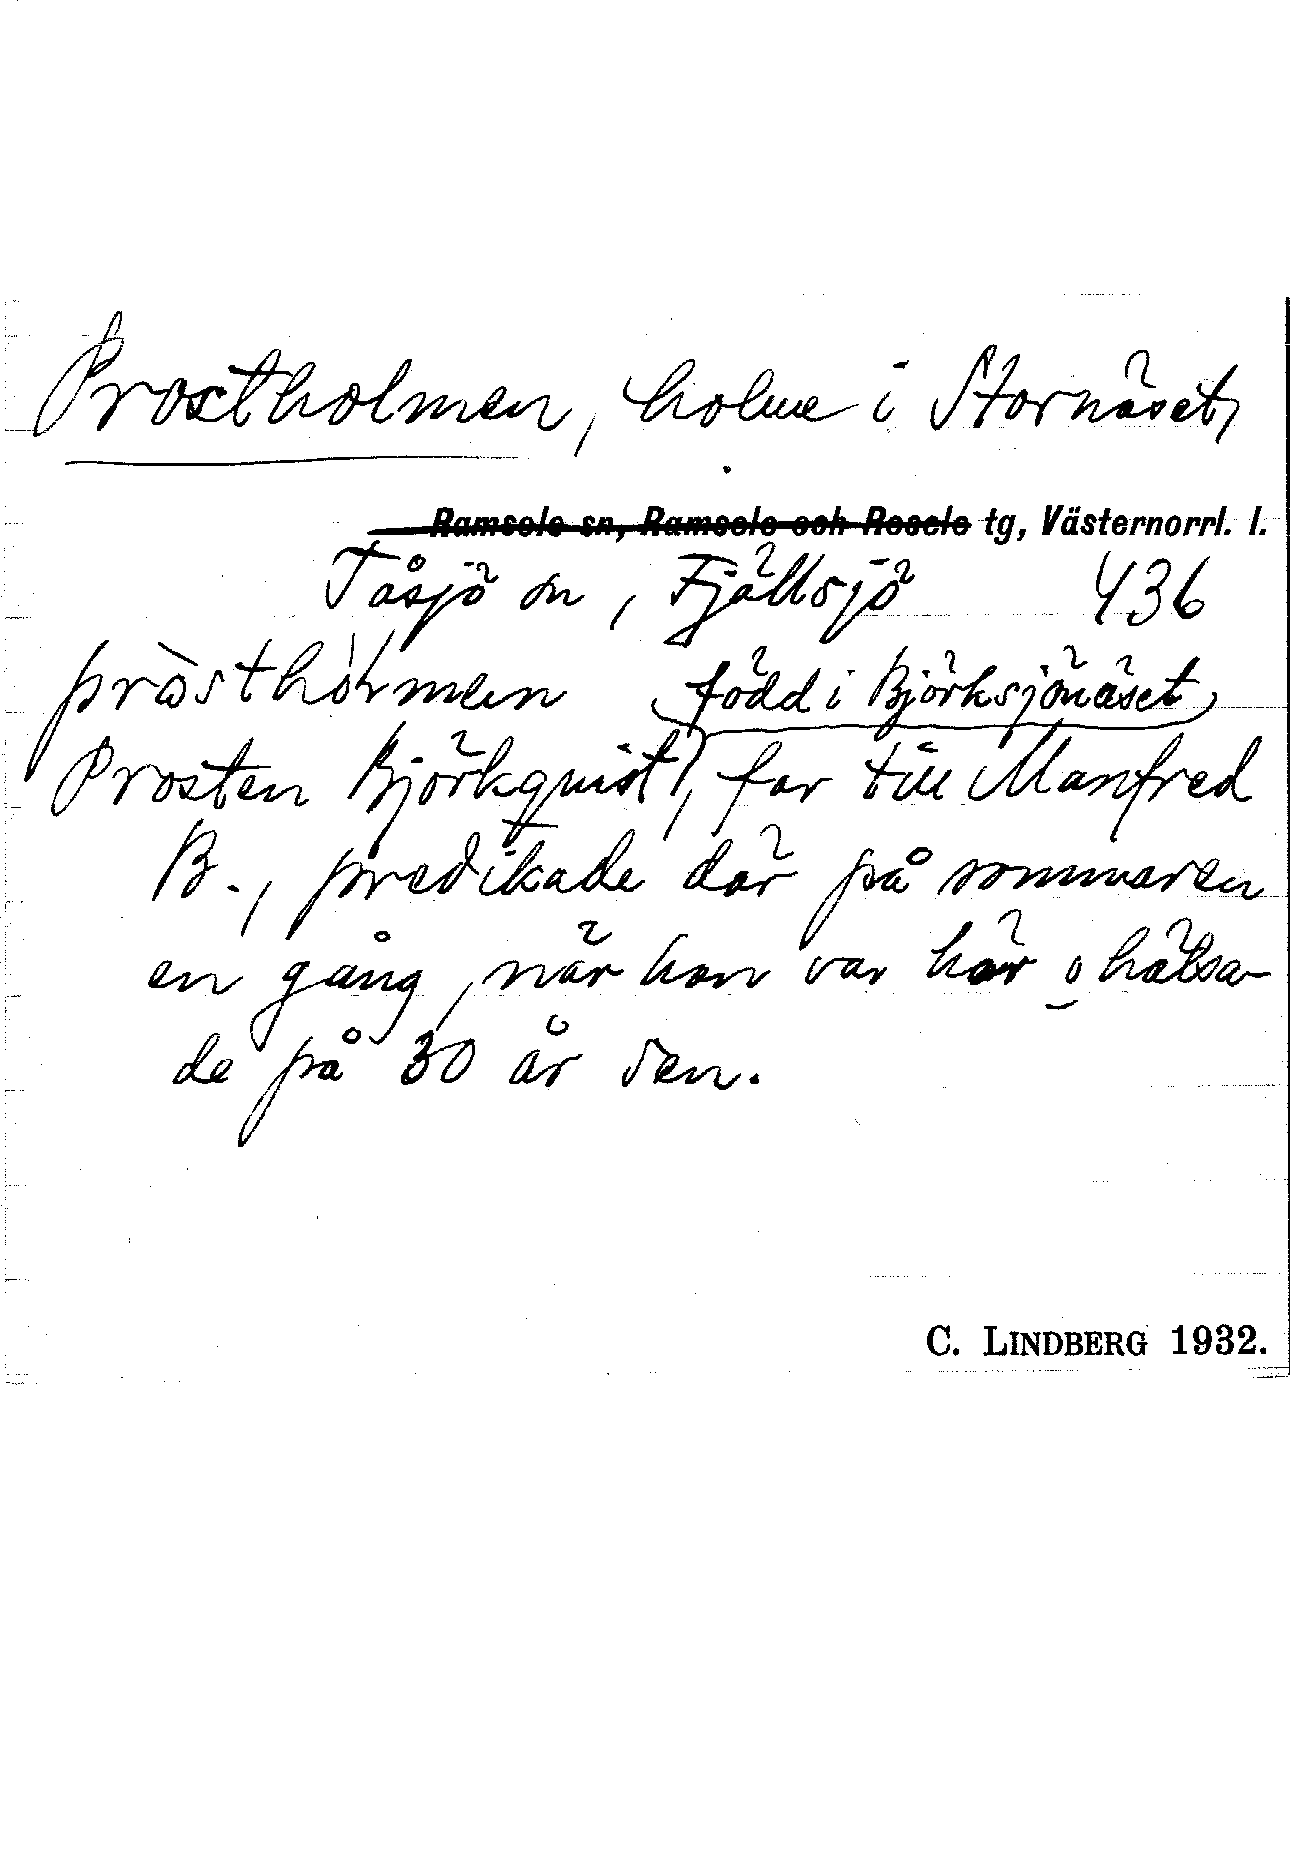 Prostholmen, holme i Stornäset,
Ramsele sn, Ramsele och Resele tg, Västernorrl. l.
Tåsjö sn, Fjällsjö 436
pròsthòrmen (född i Björksjönäset)
Prosten Björkquist, far till Manfred
B., predikade där på sommaren
en gång, när han var här o hälsa-
de på 30 år sen.
C. LINDBERG 1932.